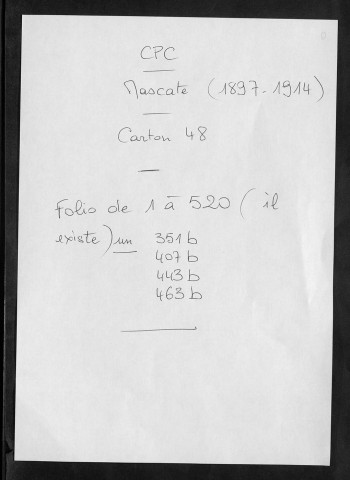 CPC
Mascate (1897-1914)
Carton 48
Folio de 1 à 520 (il
existe) un 351 b
407 b
443 b
463 b